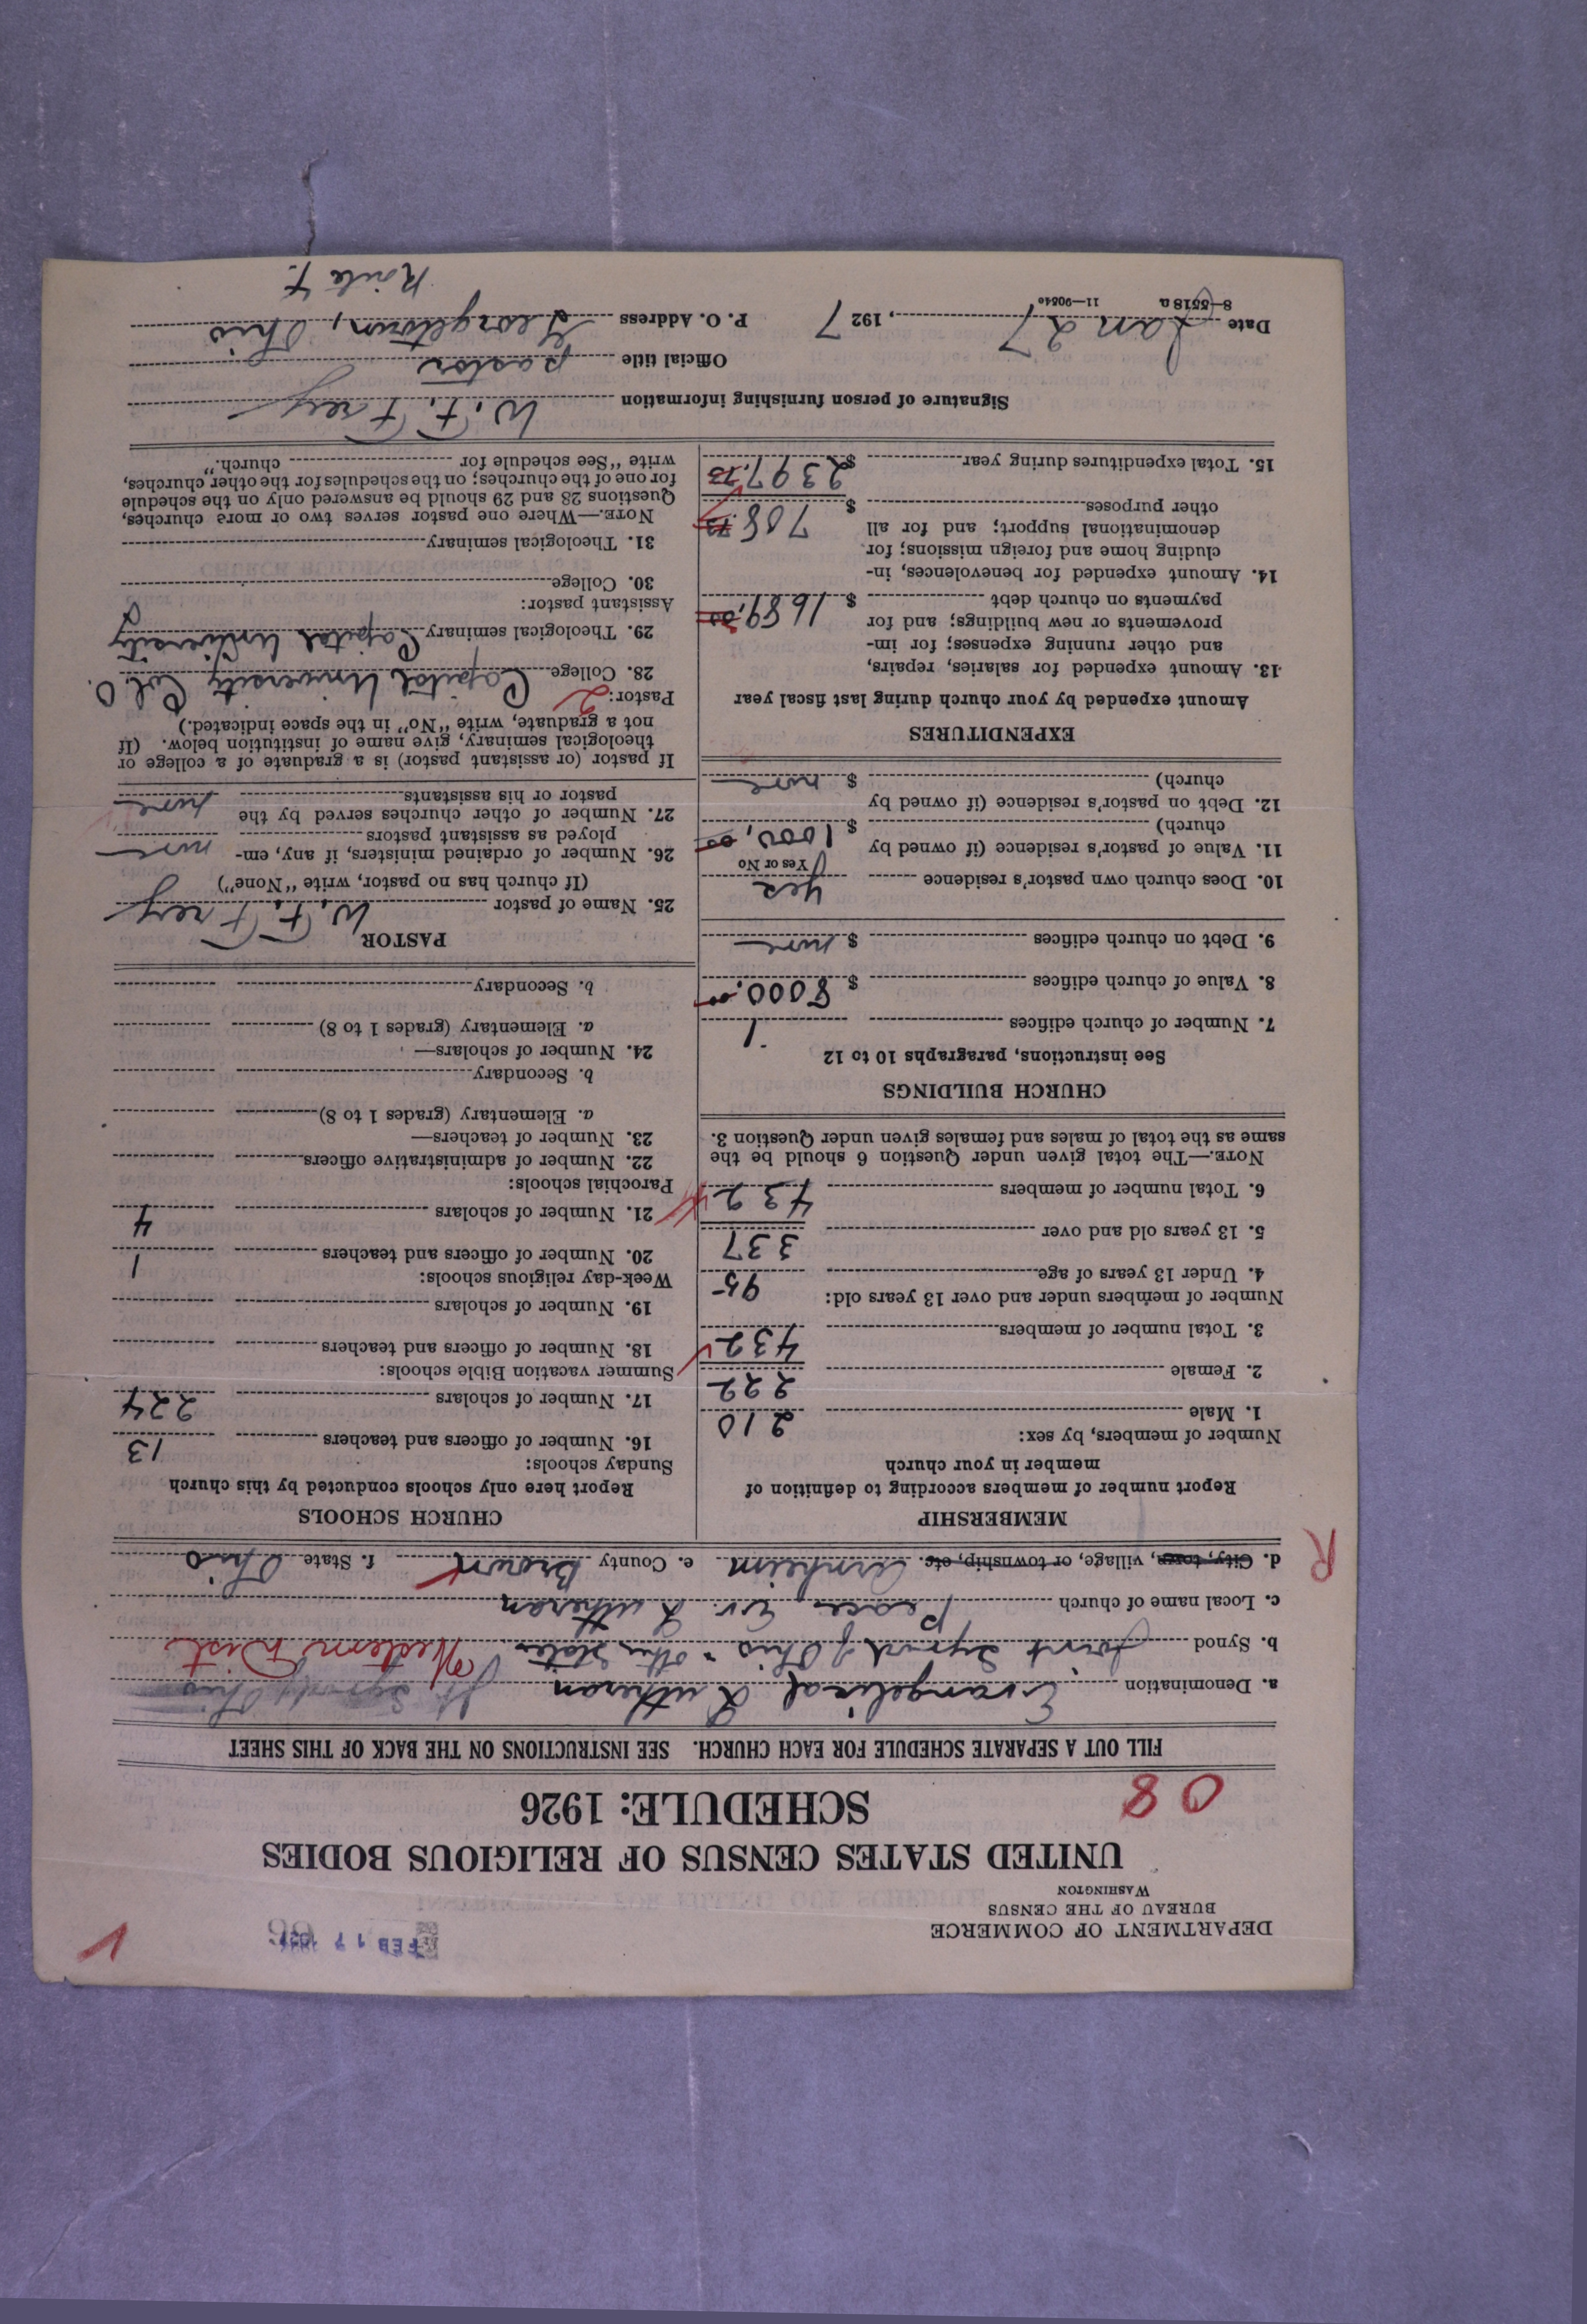 DEPARTMENT OF COMMERCE
BUREAU OF THE CENSUS
WASHINGTON
FEB 17
1
UNITED STATES CENSUS OF RELIGIOUS BODIES
08
SCHEDULE: 1926
FILL OUT A SEPARATE SCHEDULE FOR EACH CHURCH. SEE INSTRUCTIONS ON THE BACK OF THIS SHEET
a. Denomination Evangelical Lutheran
b. Synod Joint Synod of Ohio & other States Western Dist
c. Local name of church Peace Ev. Lutheran
R
d. City, town, village, or township, etc. Arnheim e. County Brown f. State Ohio
MEMBERSHIP
Report number of members according to definition of
member in your church
Number of members, by sex:
1. Male 210
2. Female 222
3. Total number of members 432
Number of members under and over 13 years old:
4. Under 13 years of age 95
5. 13 years old and over 337
6. Total number of members 432
NOTE.—The total given under Question 6 should be the
same as the total of males and females given under Question 3.
CHURCH BUILDINGS
See instructions, paragraphs 10 to 12
7. Number of church edifices 1
8. Value of church edifices $ 8000.00
9. Debt on church edifices $ none
10. Does church own pastor's residence yes
Yes or No
11. Value of pastor's residence (if owned by
church) $ 1000.00
12. Debt on pastor's residence (if owned by
church) $ none
EXPENDITURES
Amount expended by your church during last fiscal year
13. Amount expended for salaries, repairs,
and other running expenses; for im-
provements or new buildings; and for
payments on church debt $ 1689.00
14. Amount expended for benevolences, in-
cluding home and foreign missions; for
denominational support; and for all
other purposes $ 708.73
15. Total expenditures during year $ 2397.73
CHURCH SCHOOLS
Report here only schools conducted by this church
Sunday schools:
16. Number of officers and teachers 13
17. Number of scholars 224
Summer vacation Bible schools:
18. Number of officers and teachers
19. Number of scholars
Week-day religious schools:
20. Number of officers and teachers 1
21. Number of scholars 4
Parochial schools:
22. Number of administrative officers
23. Number of teachers—
a. Elementary (grades 1 to 8)
b. Secondary
24. Number of scholars—
a. Elementary (grades 1 to 8)
b. Secondary
PASTOR
25. Name of pastor W. F. Frey
(If church has no pastor, write "None")
26. Number of ordained ministers, if any, em-
ployed as assistant pastors none
27. Number of other churches served by the
pastor or his assistants none
If pastor (or assistant pastor) is a graduate of a college or
theological seminary, give name of institution below. (If
not a graduate, write "No" in the space indicated.)
Pastor: 2
28. College Capital University Col. O.
29. Theological seminary Capital University
Assistant pastor:
30. College
31. Theological seminary
NOTE.—Where one pastor serves two or more churches,
Questions 28 and 29 should be answered only on the schedule
for one of the churches; on the schedules for the other churches,
write "See schedule for church."
Signature of person furnishing information W. F. Frey
Official title pastor
Date Jan 27, 1927 P. O. Address Georgetown, Ohio
8-5518a 11-9054c
Route 7.